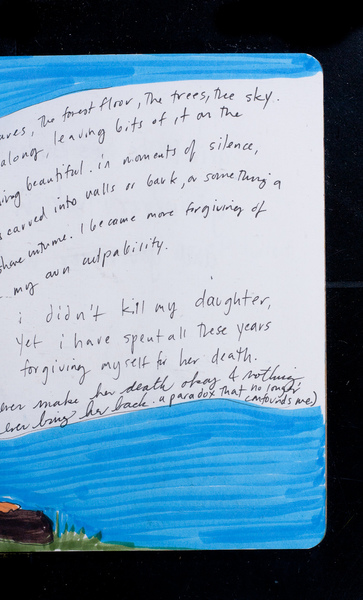 aves, The forest floor, The trees, The sky.
along, leaving bits of it on the
ing beautiful. in moments of silence,
scarved into walls or bark, or something a
share intime. I become more forgiving of
my own culpability.
i didn't kill my daughter,
yet i have spent all these years
forgiving myself for her death.
ever make her death okay & nothing
ever bring her back. a paradox that no longer
confounds me)